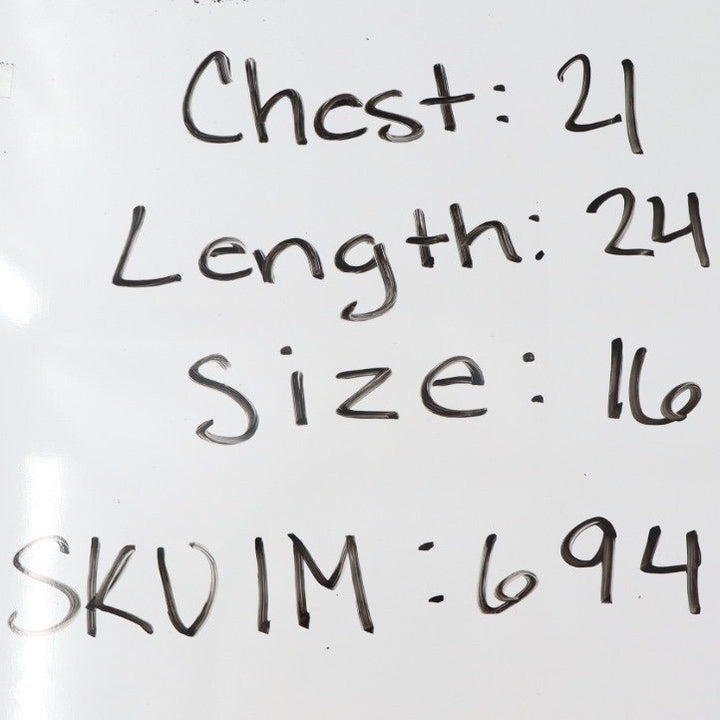 Chest: 21
Length: 24
Size: 16
SKU IM : 694